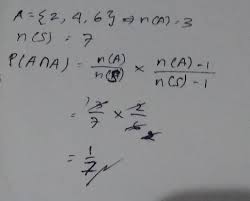 A = {2, 4, 6} ⇒ n(A) = 3
n(S) = 7
P(A∩A) = n(A)/n(S) × n(A)-1/n(S)-1
= 3/7 × 2/6 2
= 1/7